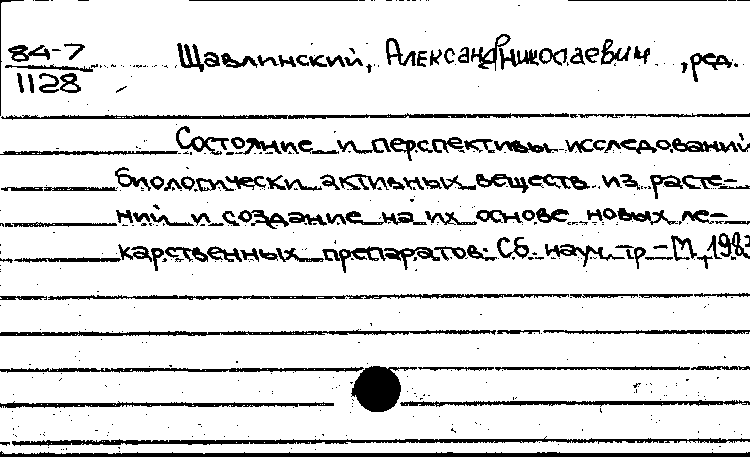 84-7 Щавлинский, Александр Николаевич, ред.
1128
Состояние и перспективы исследований
биологически активных веществ из расте-
ний и создание на их основе новых ле-
карственных препаратов: Сб. науч. тр - М, 1983